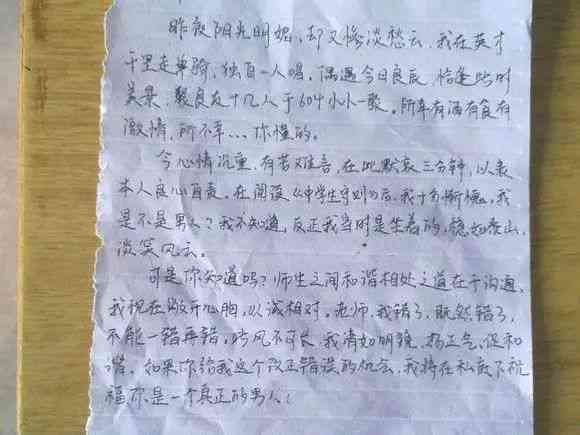 昨夜阳光明媚,却又惨淡愁云,我在英才
千里走单骑,独自一人喝,偶遇今日良辰,恰逢此时
美景,聚良友十几人于604小小一聚。所幸有酒有食有
激情,所不幸…你懂的。
今心情沉重,有苦难言,在此默哀三分钟,以表
本人良心自责,在阅读《中学生守则》后,我十分惭愧,我
是不是男人?我不知道,反正我当时是坐着的,稳如泰山,
淡笑风云。
可是你知道吗?师生之间和谐相处之道在于沟通,
我现在敞开心胸,以诚相对。老师,我错了,既然错了,
不能一错再错,此风不可长,我清如明镜,扬正气,促和
谐。如果你给我这个改正错误的机会,我将在私底下祝
福你是一个真正的男人!